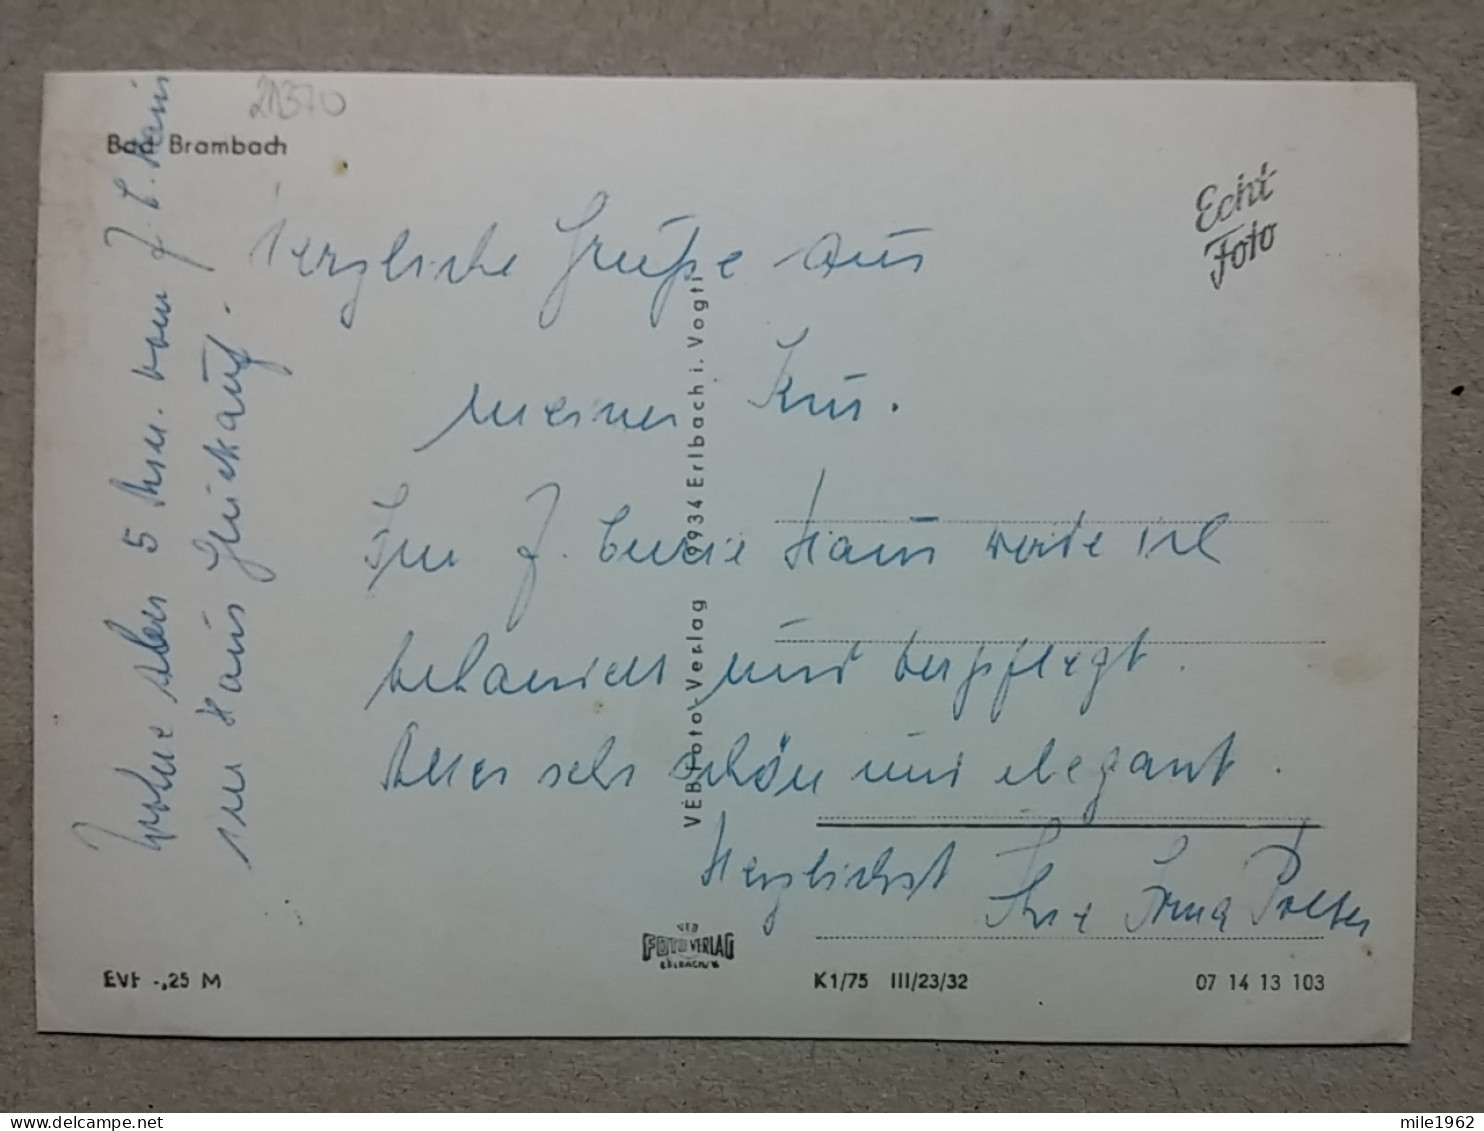 21370
Bad Brambach
Echt
Foto
Herzliche Grüße aus
meiner Kur.
Im J. Curie Haus werde ich
behandelt und verpflegt.
Alles sehr schön und elegant.
Herzlichst Ihre Irma
Wohne aber 5 Min. vom J. C. Haus
im Haus Glückauf.
VEB Foto-Verlag 9934 Erlbach i. Vogtl
VEB
FOTO VERLAG
ERLBACH/V.
EVP -,25 M
K1/75 III/23/32
07 14 13 103
mile1962